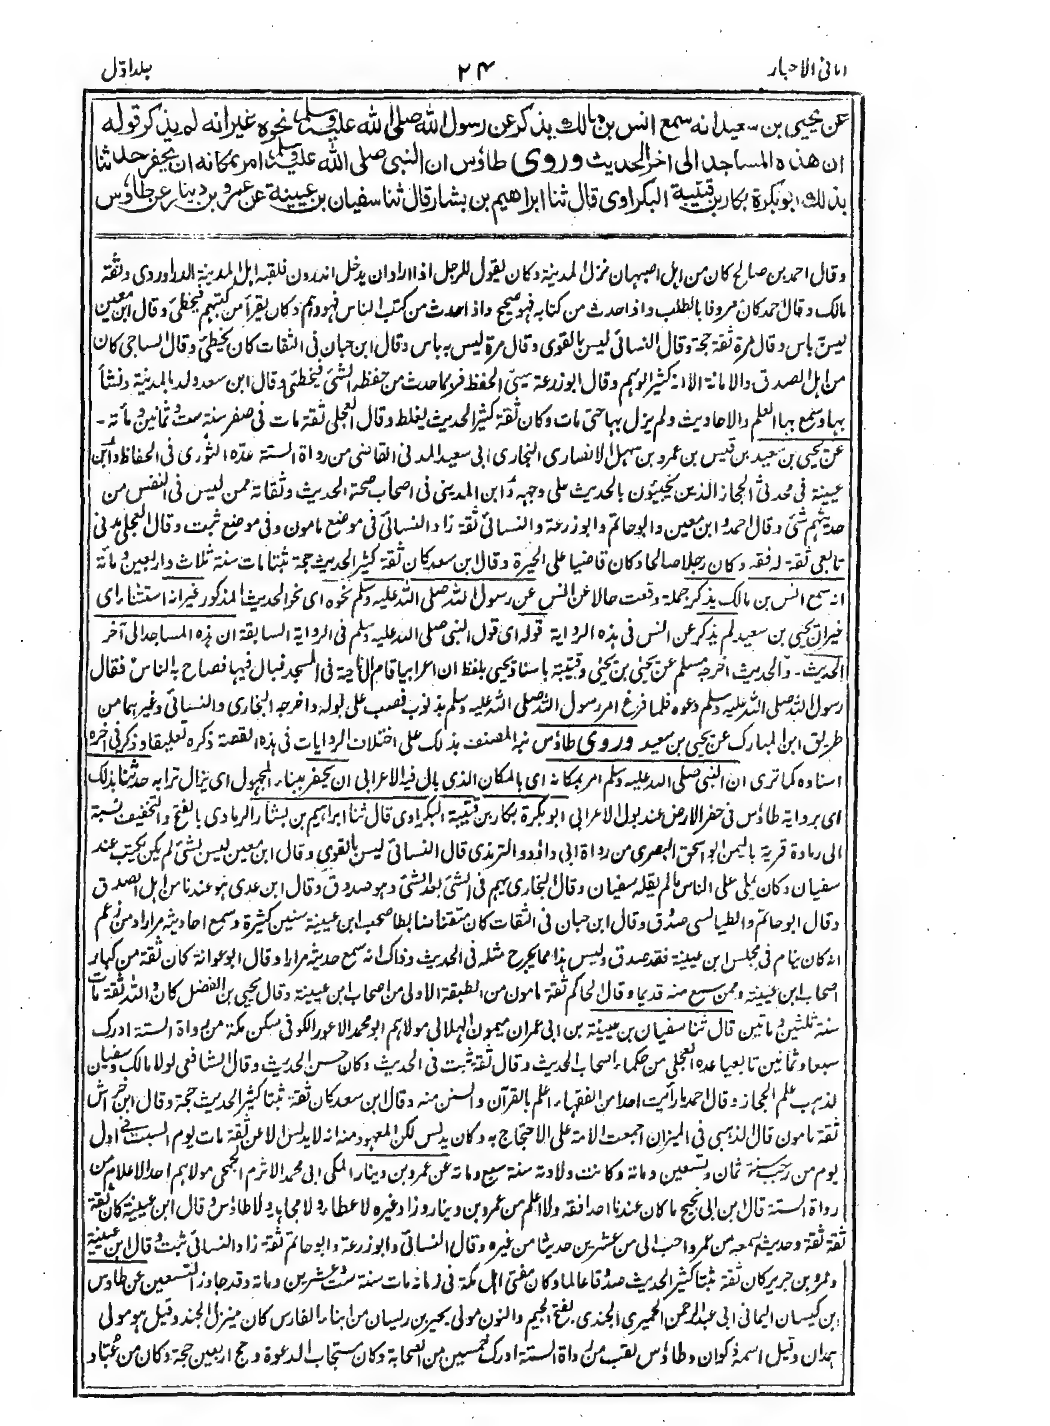 امانى الاحبار
٢٤
جلد اول
عن يحيى بن سعيد انه سمع انس بن مالك يذكر عن رسول الله صلى الله عليه وسلم نحوه غير انه لم يذكر قوله
ان هذه المساجد الى اخر الحديث وروى طاؤس ان النبي صلى الله عليه وسلم امر بمكانه ان يحفر حدثنا
بذلك ابو بكرة بكار بن قتيبة البكراوى قال ثنا ابراهيم بن بشار قال ثنا سفيان بن عيينة عن عمرو بن دينار عن طاؤس
وقال احمد بن صالح كان من اهل اصبهان نزل المدينة وكان يقول للرجل اذا اراد ان يدخل اندرون فلقبه اهل المدينة الدراوردى وثقة
مالك وقال احمد كان معروفا بالطلب واذا حدث من كتابه فهو صحيح واذا حدث من كتب الناس فهو وهم وكان يقرأ من كتبهم فيخطئ وقال ابن معين
ليس به بأس وقال مرة ثقة حجة وقال النسائى ليس بالقوى وقال مرة ليس به بأس وقال ابن حبان فى الثقات كان يخطئ وقال الساجى كان
من اهل الصدق والامانة الا انه كثير الوهم وقال ابو زرعة سيئ الحفظ فربما حدث من حفظه الشئ فيخطئ وقال ابن سعد ولد بالمدينة ونشأ
بها وسمع بها العلم والاحاديث ولم يزل بها حتى مات وكان ثقة كثير الحديث يغلط وقال العجلى ثقة مات فى صفر سنة ست وثمانين ومأئة -
عن يحيى بن سعيد بن قيس بن عمرو بن سهل الانصارى النجارى ابى سعيد المدنى القاضى من رواة الستة عده الثورى فى الحفاظ وابن
عيينة فى محدثى الحجاز الذين يجيئون بالحديث على وجهه وابن المدينى فى اصحاب صحة الحديث وثقاته ممن ليس فى النفس من
حديثهم شئ وقال احمد وابن معين وابو حاتم وابو زرعة والنسائى ثقة زاد النسائى فى موضع مامون وفى موضع ثبت وقال العجلى مدنى
تابعى ثقة له فقه وكان رجلا صالحا وكان قاضيا على الحيرة وقال ابن سعد كان ثقة كثير الحديث حجة ثبتا مات سنة ثلاث واربعين ومائة
انه سمع انس بن مالك يذكر جملة وقعت حالا عن انس عن رسول الله صلى الله عليه وسلم نحوه اى نحو الحديث المذكور غير انه استثناء اى
غير ان يحيى بن سعيد لم يذكر عن انس فى هذه الرواية قوله اى قول النبى صلى الله عليه وسلم فى الرواية السابقة ان هذه المساجد الى آخر
الحديث - والحديث اخرجه مسلم عن يحيى بن يحيى وقتيبة باسناد يحيى بلفظ ان اعرابيا قام الى ناحية فى المسجد فبال فيها فصاح به الناس فقال
رسول الله صلى الله عليه وسلم دعوه فلما فرغ امر رسول الله صلى الله عليه وسلم بذنوب فصب على بوله واخرجه البخارى والنسائى وغيرهما من
طريق ابن المبارك عن يحيى بن سعيد وروى طاؤس نبه المصنف بذلك على اختلاف الروايات فى هذه القصة ذكره تعليقا وذكر فى آخره
اسناده كما ترى ان النبى صلى الله عليه وسلم امر بمكانه اى بالمكان الذى بال فيه الاعرابى ان يحفر ببناء المجهول اى يزال ترابه حدثنا بذلك
اى برواية طاؤس فى حفر الارض عند بول الاعرابى ابو بكرة بكار بن قتيبة البكراوى قال ثنا ابراهيم بن بشار الرمادى بالفتح والتخفيف نسبة
الى رمادة قرية باليمن ابو اسحق البصرى من رواة ابى داؤد والترمذى قال النسائى ليس بالقوى وقال ابن معين ليس بشئ لم يكن يكتب عند
سفيان وكان يملى على الناس ما لم يقله سفيان وقال البخارى يهم فى الشئ بعد الشئ وهو صدوق وقال ابن عدى هو عندنا من اهل الصدق
وقال ابو حاتم والطيالسى صدوق وقال ابن حبان فى الثقات كان متقنا ضابطا صحب ابن عيينة سنين كثيرة وسمع احاديثه مرارا ومن زعم
انه كان ينام فى مجلس ابن عيينة فقد صدق وليس هذا مما يجرح مثله فى الحديث وذاك انه سمع حديثه مرارا وقال ابو عوانة كان ثقة من كبار
اصحاب ابن عيينة وممن سمع منه قديما وقال الحاكم ثقة مامون من الطبقة الاولى من اصحاب ابن عيينة وقال يحيى بن الفضل كان والله ثقة مات
سنة ثلثين ومأتين قال ثنا سفيان بن عيينة بن ابى عمران ميمون الهلالى مولاهم ابو محمد الاعور الكوفى سكن مكة من رواة الستة ادرك
سبعا وثمانين تابعيا عده العجلى من حكماء اصحاب الحديث وقال ثقة ثبت فى الحديث وكان حسن الحديث وقال الشافعى لولا مالك وسفيان
لذهب علم الحجاز وقال احمد ما رأيت احدا من الفقهاء اعلم بالقرآن والسنن منه وقال ابن سعد كان ثقة ثبتا كثير الحديث حجة وقال ابن خراش
ثقة مامون قال الذهبى فى الميزان اجمعت الامة على الاحتجاج به وكان يدلس لكن المعهود منه انه لا يدلس الا عن ثقة مات يوم السبت فى اول
يوم من رجب سنة ثمان وتسعين ومائة وكانت ولادته سنة سبع ومائة عن عمرو بن دينار المكى ابى محمد الاثرم الجمحى مولاهم احد الاعلام من
رواة الستة قال ابن ابى نجيح ما كان عندنا احد افقه ولا اعلم من عمرو بن دينار وزاد غيره لا عطاء ولا مجاهد ولا طاؤس وقال ابن عيينة كان ثقة
ثقة ثقة وحديث اسمعه من عمرو احب الى من عشرين حديثا من غيره وقال النسائى وابو زرعة وابو حاتم ثقة زاد النسائى ثبت وقال ابن عيينة
وعمرو بن جرير كان ثقة ثبتا كثير الحديث صدوقا عالما وكان مفتى اهل مكة فى زمانه مات سنة ست وعشرين ومائة وقد جاوز التسعين عن طاؤس
بن كيسان اليمانى ابى عبد الرحمن الحميرى الجندى بفتح الجيم والنون مولى بحير بن ريسان من ابناء الفارس كان ينزل الجند وقيل هو مولى
همدان وقيل اسمه ذكوان وطاؤس لقب من رواة الستة ادرك خمسين من الصحابة وكان مستجاب الدعوة وحج اربعين حجة وكان من عباد